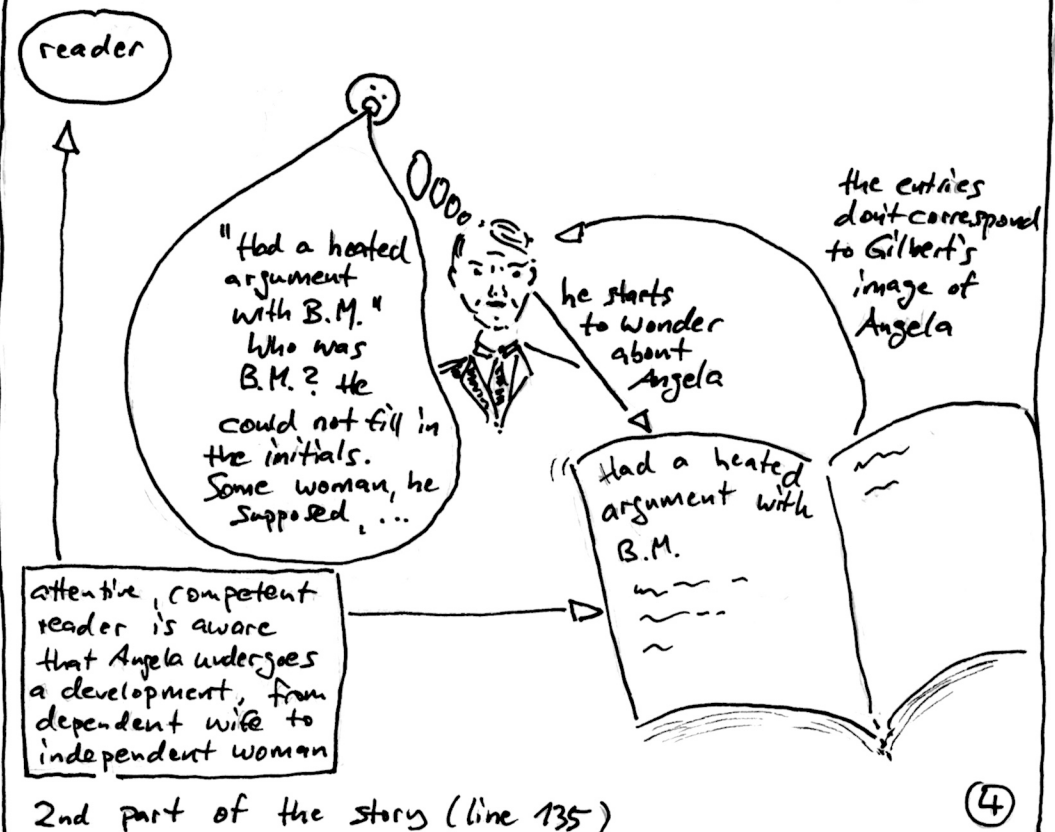 reader
"Had a heated
argument
with B.M."
Who was
B.M.? He
could not fill in
the initials.
Some woman, he
supposed, ...
he starts
to wonder
about
Angela
the entries
don't correspond
to Gilbert's
image of
Angela
Had a heated
argument with
B.M.
attentive, competent
reader is aware
that Angela undergoes
a development, from
dependent wife to
independent woman
2nd part of the story (line 135)
4